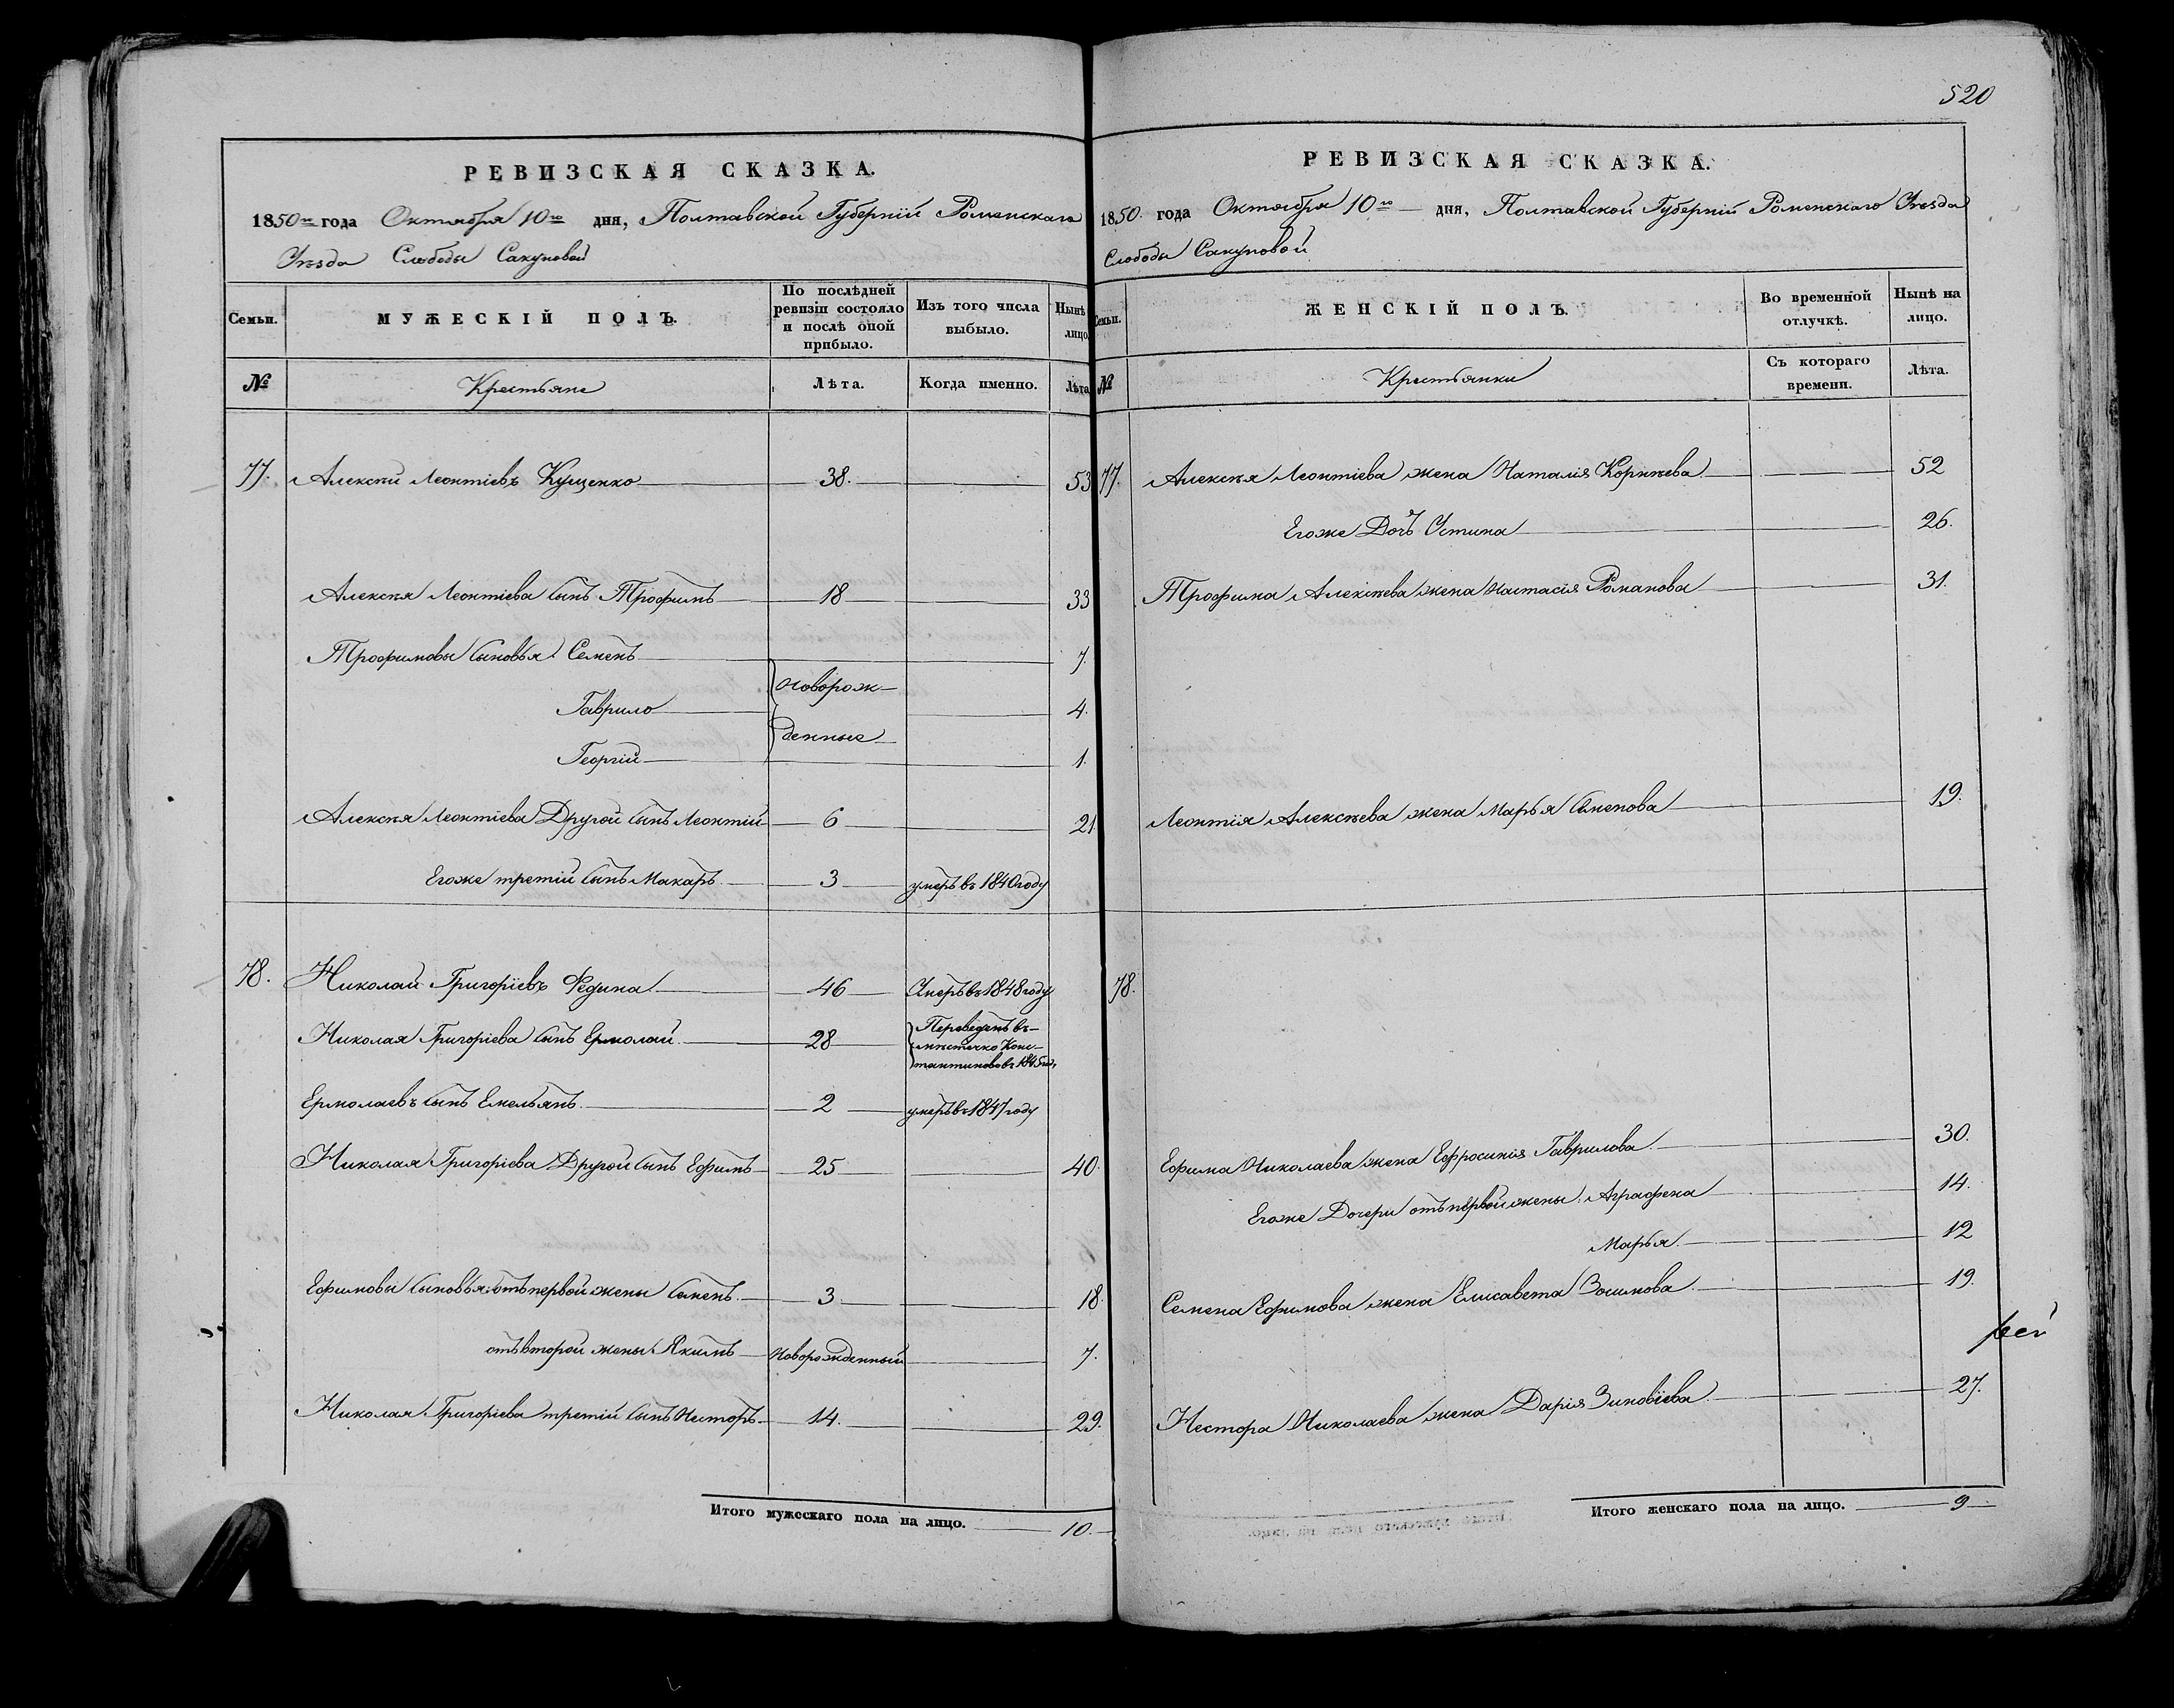 520
РЕВИЗСКАЯ СКАЗКА.
1850го года Октября 10го дня, Полтавской Губерніи Роменскаго
Уезда Слободы Сакуновой
Семьи.
МУЖЕСКІЙ ПОЛЪ.
По послѣдней ревизіи состояло и послѣ оной прибыло.
Изъ того числа выбыло.
Нынѣ лицо
№
Крестьяне
Лѣта.
Когда именно.
Лѣта
77. Алексѣй Леонтіевъ Кущенко 38. 53
Алексѣя Леонтіева сынъ Трофимъ 18 33
Трофимовы сыновья: Семенъ 7.
новорож-
Гаврило 4.
денные
Георгій 1.
Алексѣя Леонтіева Другой сынъ Леонтій 6 21
Егоже третій сынъ Макаръ 3 умеръ въ 1840 году
78. Николай Григоріевъ Федина 46 Умеръ въ 1848 году
Николая Григоріева сынъ Ермолай 28 Переведенъ въ
мѣстечко Конс-
тантиново въ 1845 год.
Ермолаевъ сынъ Емельянъ 2 умеръ въ 1847 году
Николая Григоріева Другой сынъ Ефимъ 25 40.
Ефимовы сыновья: отъ первой жены Семенъ 3 18.
отъ второй жены Якимъ новорожденный 7.
Николая Григоріева третій сынъ Несторъ 14. 29.
Итого мужескаго пола на лицо. 10.
РЕВИЗСКАЯ СКАЗКА.
1850. года Октября 10го дня, Полтавской Губерніи Роменскаго Уезда
Слободы Сакуновой
Семьи.
ЖЕНСКІЙ ПОЛЪ.
Во временной отлучкѣ.
Нынѣ на лицо.
№
Крестьянки
Съ котораго времени.
Лѣта.
77. Алексѣя Леонтіева жена Наталія Корнѣева 52
Егоже Дочь Устина 26.
Трофима Алексѣева жена Настасія Романова 31.
Леонтія Алексѣева жена Марья Семенова 19.
78.
Ефима Николаева жена Ефросинія Гаврилова 30.
Егоже Дочери отъ первой жены: Аграфена 14.
Марья 12
Семена Ефимова жена Елисавета Зосимова 19.
Нестора Николаева жена Дарія Зиновіева 27.
Итого женскаго пола на лицо. 9